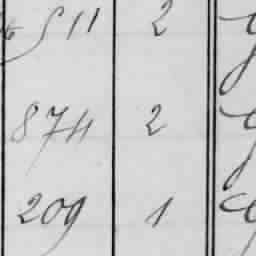 511 2
874 2
209 1